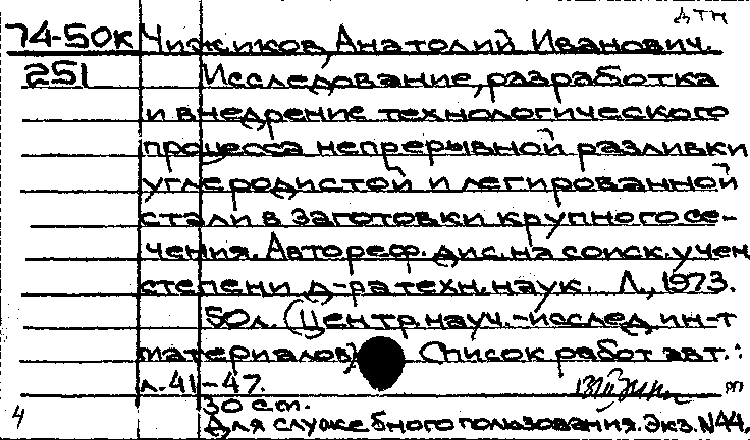 ДТН
74-50к Чижиков, Анатолий Иванович.
251 Исследование, разработка
и внедрение технологического
процесса непрерывной разливки
углеродистой и легированной
стали в заготовки крупного се-
чения. Автореф. дис. на соиск. учен
степени д-ра техн. наук. Л., 1973.
50л. (Центр. науч.-исслед. ин-т
материалов) Список работ авт.:
л. 41-47.
30 см.
4 Для служебного пользования. Экз. N44.